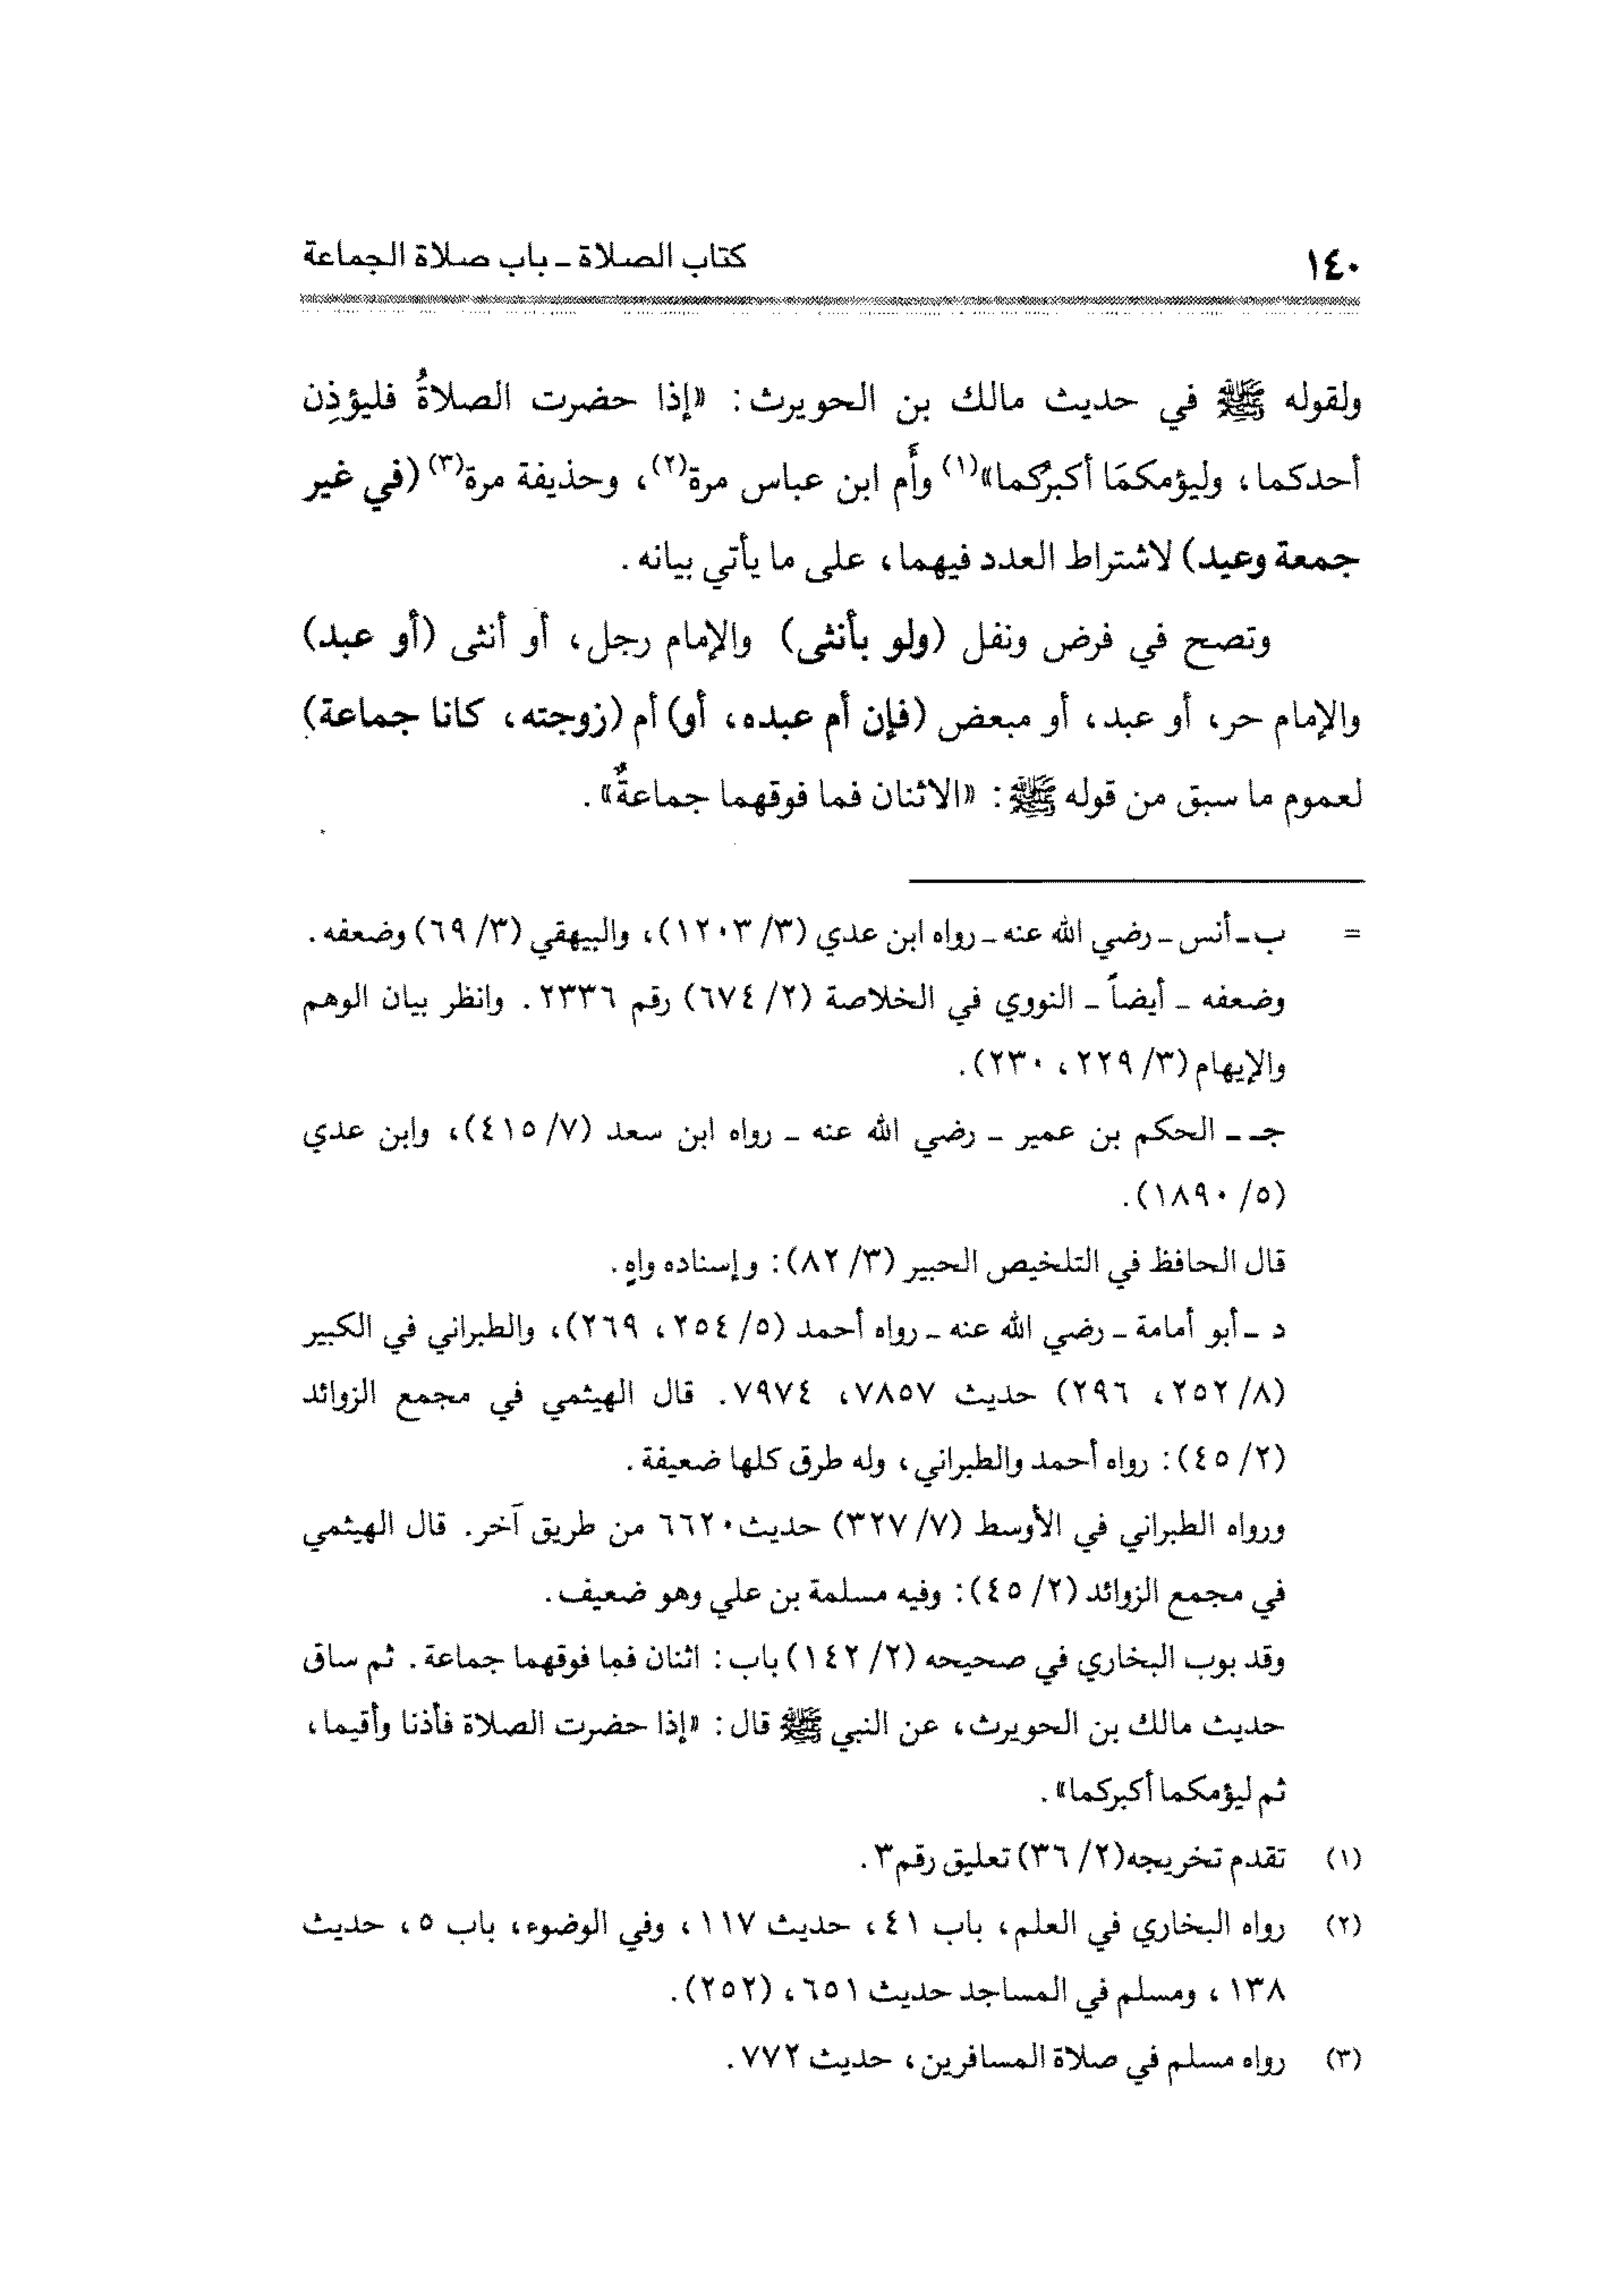 ١٤٠ كتاب الصلاة ـ باب صلاة الجماعة
ولقوله ﷺ في حديث مالك بن الحويرث: «إذا حضرت الصلاةُ فليؤذِن
أحدكما، وليؤمكمَا أكبرُكما»(١) وأَم ابن عباس مرة(٢)، وحذيفة مرة(٣) (في غير
جمعة وعيد) لاشتراط العدد فيهما، على ما يأتي بيانه.
وتصح في فرض ونفل (ولو بأنثى) والإمام رجل، أو أنثى (أو عبد)
والإمام حر، أو عبد، أو مبعض (فإن أم عبده، أو) أم (زوجته، كانا جماعة)
لعموم ما سبق من قوله ﷺ: «الاثنان فما فوقهما جماعةٌ».
= ب ـ أنس ـ رضي الله عنه ـ رواه ابن عدي (٣/ ١٢٠٣)، والبيهقي (٣/ ٦٩) وضعفه.
وضعفه ـ أيضاً ـ النووي في الخلاصة (٢/ ٦٧٤) رقم ٢٣٣٦. وانظر بيان الوهم
والإيهام (٣/ ٢٢٩، ٢٣٠).
جـ ـ الحكم بن عمير ـ رضي الله عنه ـ رواه ابن سعد (٧/ ٤١٥)، وابن عدي
(٥/ ١٨٩٠).
قال الحافظ في التلخيص الحبير (٣/ ٨٢): وإسناده واهٍ.
د ـ أبو أمامة ـ رضي الله عنه ـ رواه أحمد (٥/ ٢٥٤، ٢٦٩)، والطبراني في الكبير
(٨/ ٢٥٢، ٢٩٦) حديث ٧٨٥٧، ٧٩٧٤. قال الهيثمي في مجمع الزوائد
(٢/ ٤٥): رواه أحمد والطبراني، وله طرق كلها ضعيفة.
ورواه الطبراني في الأوسط (٧/ ٣٢٧) حديث٦٦٢٠ من طريق آخر. قال الهيثمي
في مجمع الزوائد (٢/ ٤٥): وفيه مسلمة بن علي وهو ضعيف.
وقد بوب البخاري في صحيحه (٢/ ١٤٢) باب: اثنان فما فوقهما جماعة. ثم ساق
حديث مالك بن الحويرث، عن النبي ﷺ قال: «إذا حضرت الصلاة فأذنا وأقيما،
ثم ليؤمكما أكبركما».
(١) تقدم تخريجه(٢/ ٣٦) تعليق رقم٣.
(٢) رواه البخاري في العلم، باب ٤١، حديث ١١٧، وفي الوضوء، باب ٥، حديث
١٣٨، ومسلم في المساجد حديث ٦٥١، (٢٥٢).
(٣) رواه مسلم في صلاة المسافرين، حديث ٧٧٢.